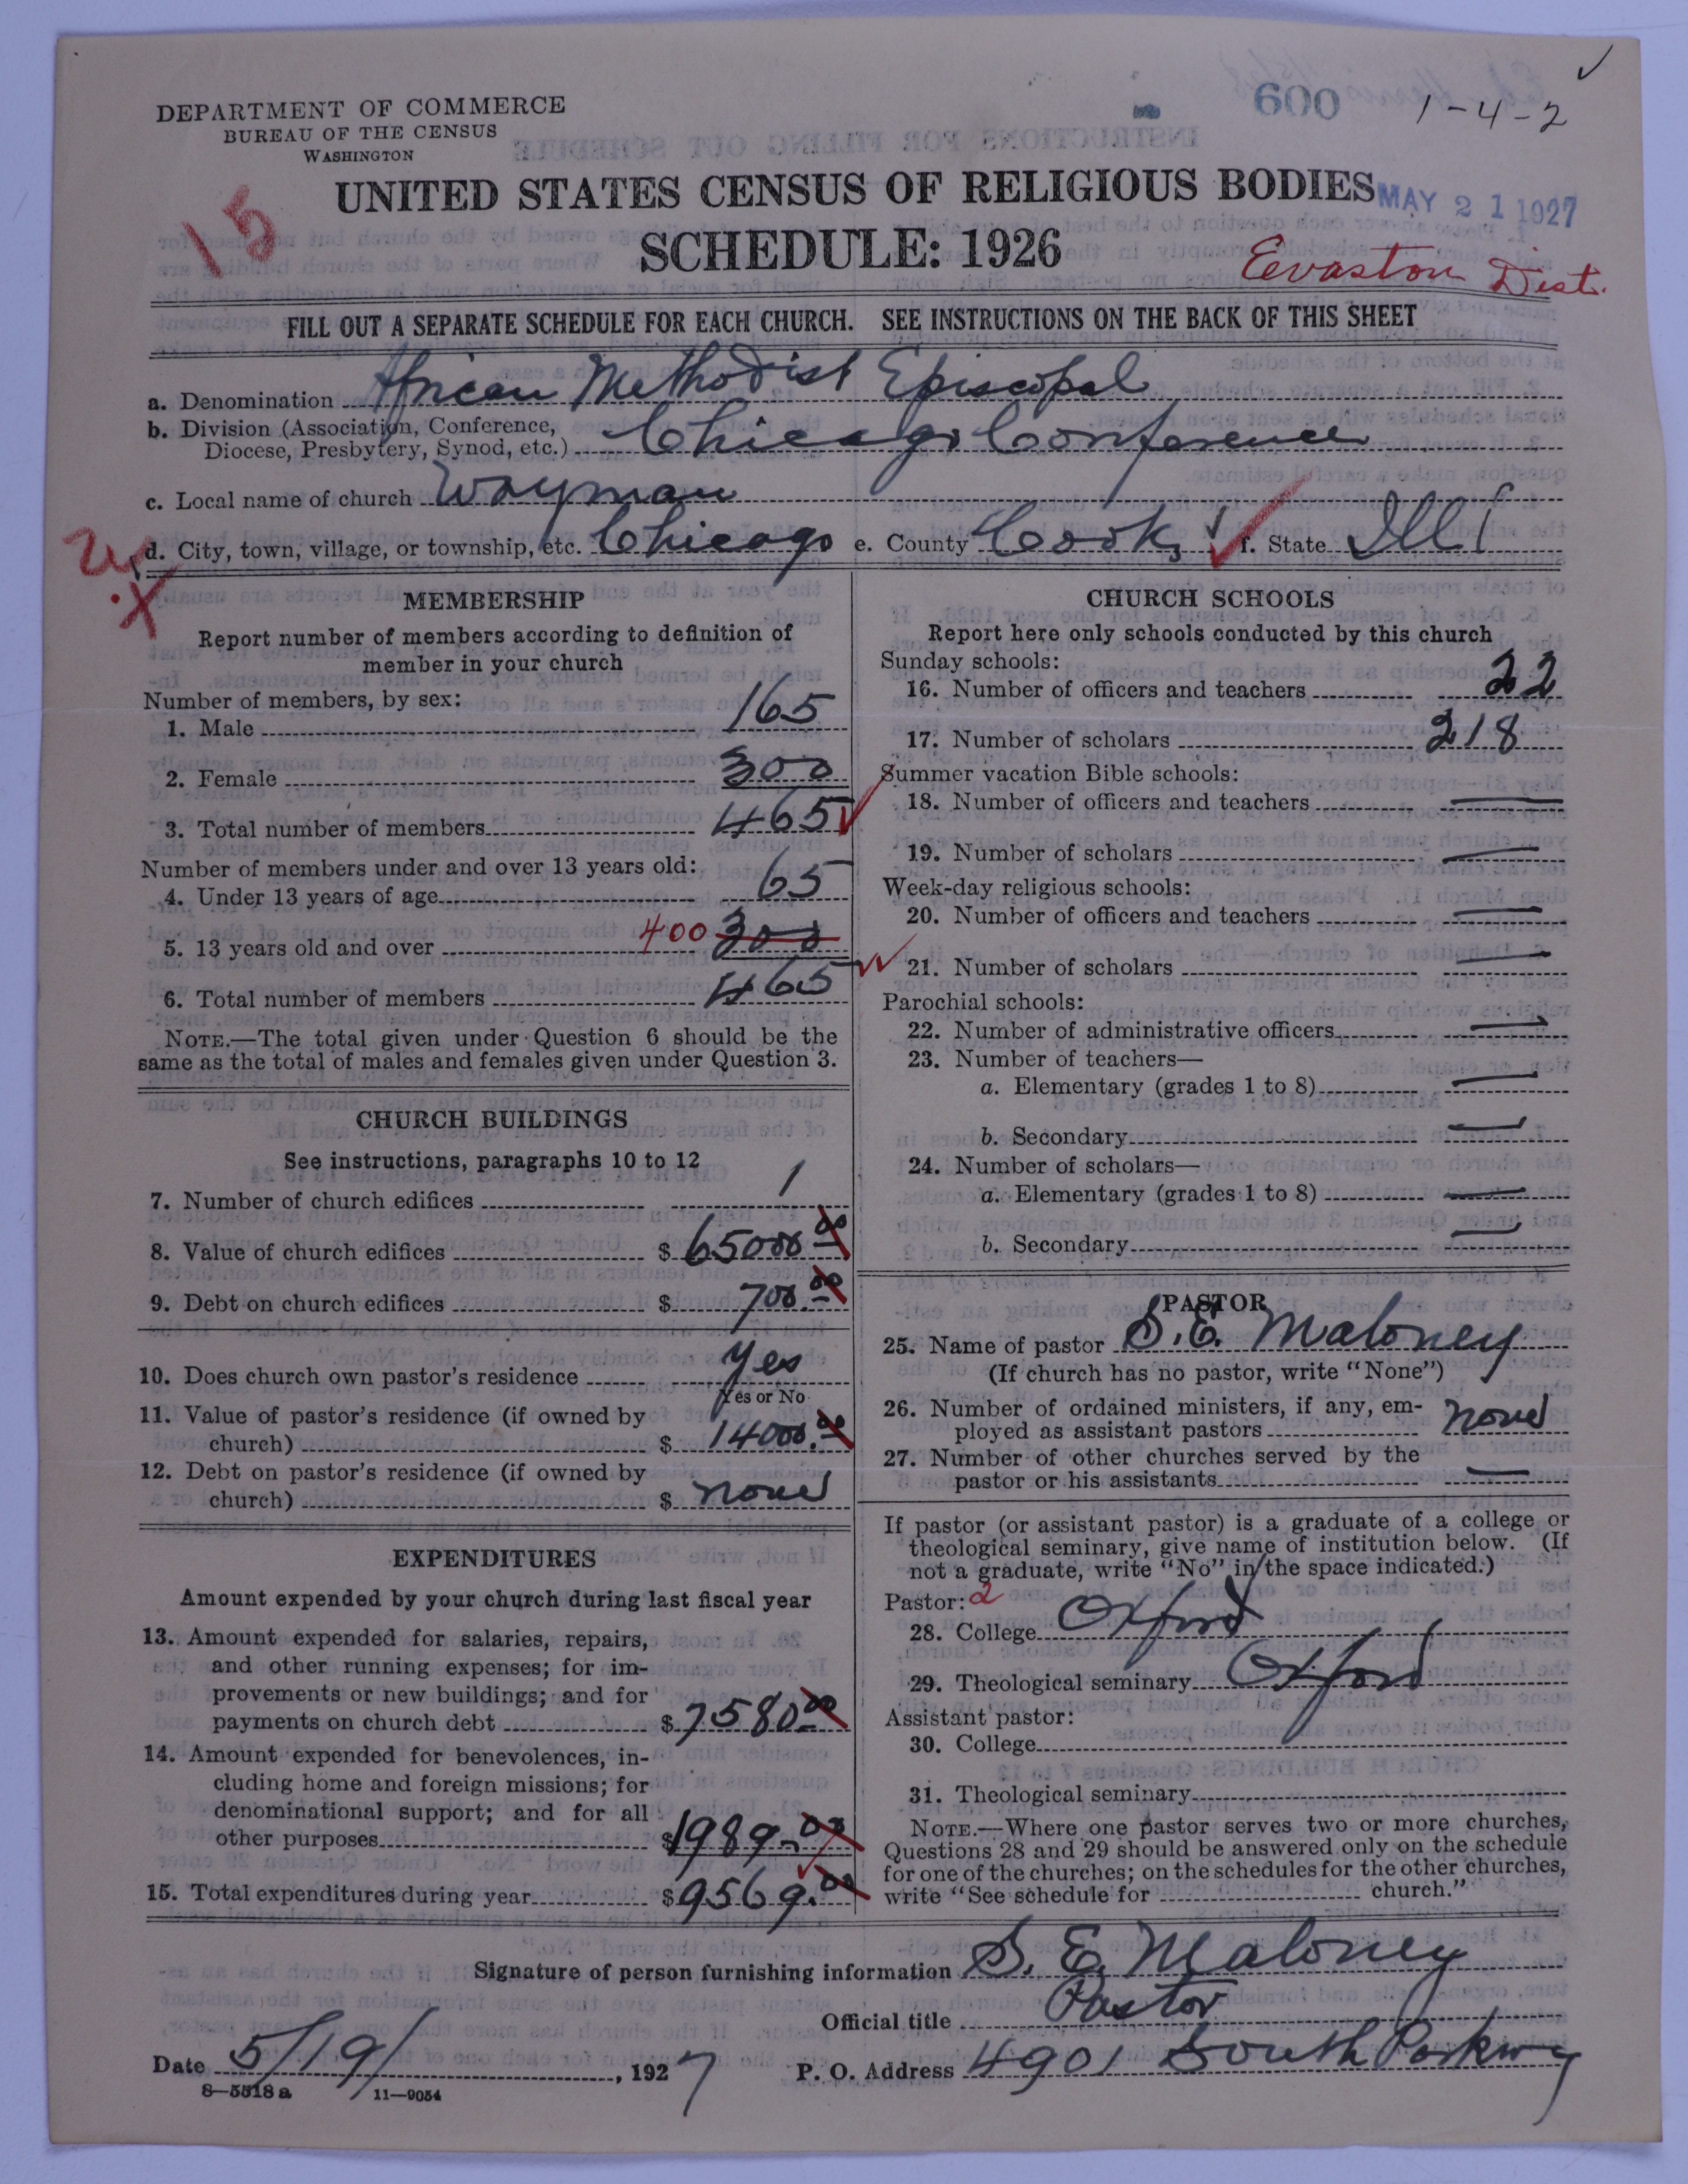 DEPARTMENT OF COMMERCE
BUREAU OF THE CENSUS
WASHINGTON
600
1-4-2
15
UNITED STATES CENSUS OF RELIGIOUS BODIES
MAY 21 1927
SCHEDULE: 1926
Evaston Dist.
FILL OUT A SEPARATE SCHEDULE FOR EACH CHURCH. SEE INSTRUCTIONS ON THE BACK OF THIS SHEET
a. Denomination African Methodist Episcopal
b. Division (Association, Conference,
Diocese, Presbytery, Synod, etc.) Chicago Conference
c. Local name of church Wayman
d. City, town, village, or township, etc. Chicago e. County Cook f. State Ill
MEMBERSHIP
Report number of members according to definition of
member in your church
Number of members, by sex:
1. Male 165
2. Female 300
3. Total number of members 465
Number of members under and over 13 years old:
4. Under 13 years of age 65
5. 13 years old and over 400 300
6. Total number of members 465
NOTE.—The total given under Question 6 should be the
same as the total of males and females given under Question 3.
CHURCH BUILDINGS
See instructions, paragraphs 10 to 12
7. Number of church edifices 1
8. Value of church edifices $ 65000.00
9. Debt on church edifices $ 700.00
10. Does church own pastor's residence Yes
Yes or No
11. Value of pastor's residence (if owned by
church) $ 14000.00
12. Debt on pastor's residence (if owned by
church) $ none
EXPENDITURES
Amount expended by your church during last fiscal year
13. Amount expended for salaries, repairs,
and other running expenses; for im-
provements or new buildings; and for
payments on church debt $ 7580.00
14. Amount expended for benevolences, in-
cluding home and foreign missions; for
denominational support; and for all
other purposes $ 1989.00
15. Total expenditures during year $ 9569.00
CHURCH SCHOOLS
Report here only schools conducted by this church
Sunday schools:
16. Number of officers and teachers 22
17. Number of scholars 218
Summer vacation Bible schools:
18. Number of officers and teachers —
19. Number of scholars —
Week-day religious schools:
20. Number of officers and teachers —
21. Number of scholars —
Parochial schools:
22. Number of administrative officers —
23. Number of teachers—
a. Elementary (grades 1 to 8) —
b. Secondary —
24. Number of scholars—
a. Elementary (grades 1 to 8) —
b. Secondary —
PASTOR
25. Name of pastor S. E. Maloney
(If church has no pastor, write "None")
26. Number of ordained ministers, if any, em-
ployed as assistant pastors none
27. Number of other churches served by the
pastor or his assistants —
If pastor (or assistant pastor) is a graduate of a college or
theological seminary, give name of institution below. (If
not a graduate, write "No" in the space indicated.)
Pastor: 2
28. College Oxford
29. Theological seminary Oxford
Assistant pastor:
30. College
31. Theological seminary
NOTE.—Where one pastor serves two or more churches,
Questions 28 and 29 should be answered only on the schedule
for one of the churches; on the schedules for the other churches,
write "See schedule for church."
Signature of person furnishing information S. E. Maloney
Official title Pastor
Date 5/19/, 1927 P. O. Address 4901 South Parkway
8—5518a 11—9054